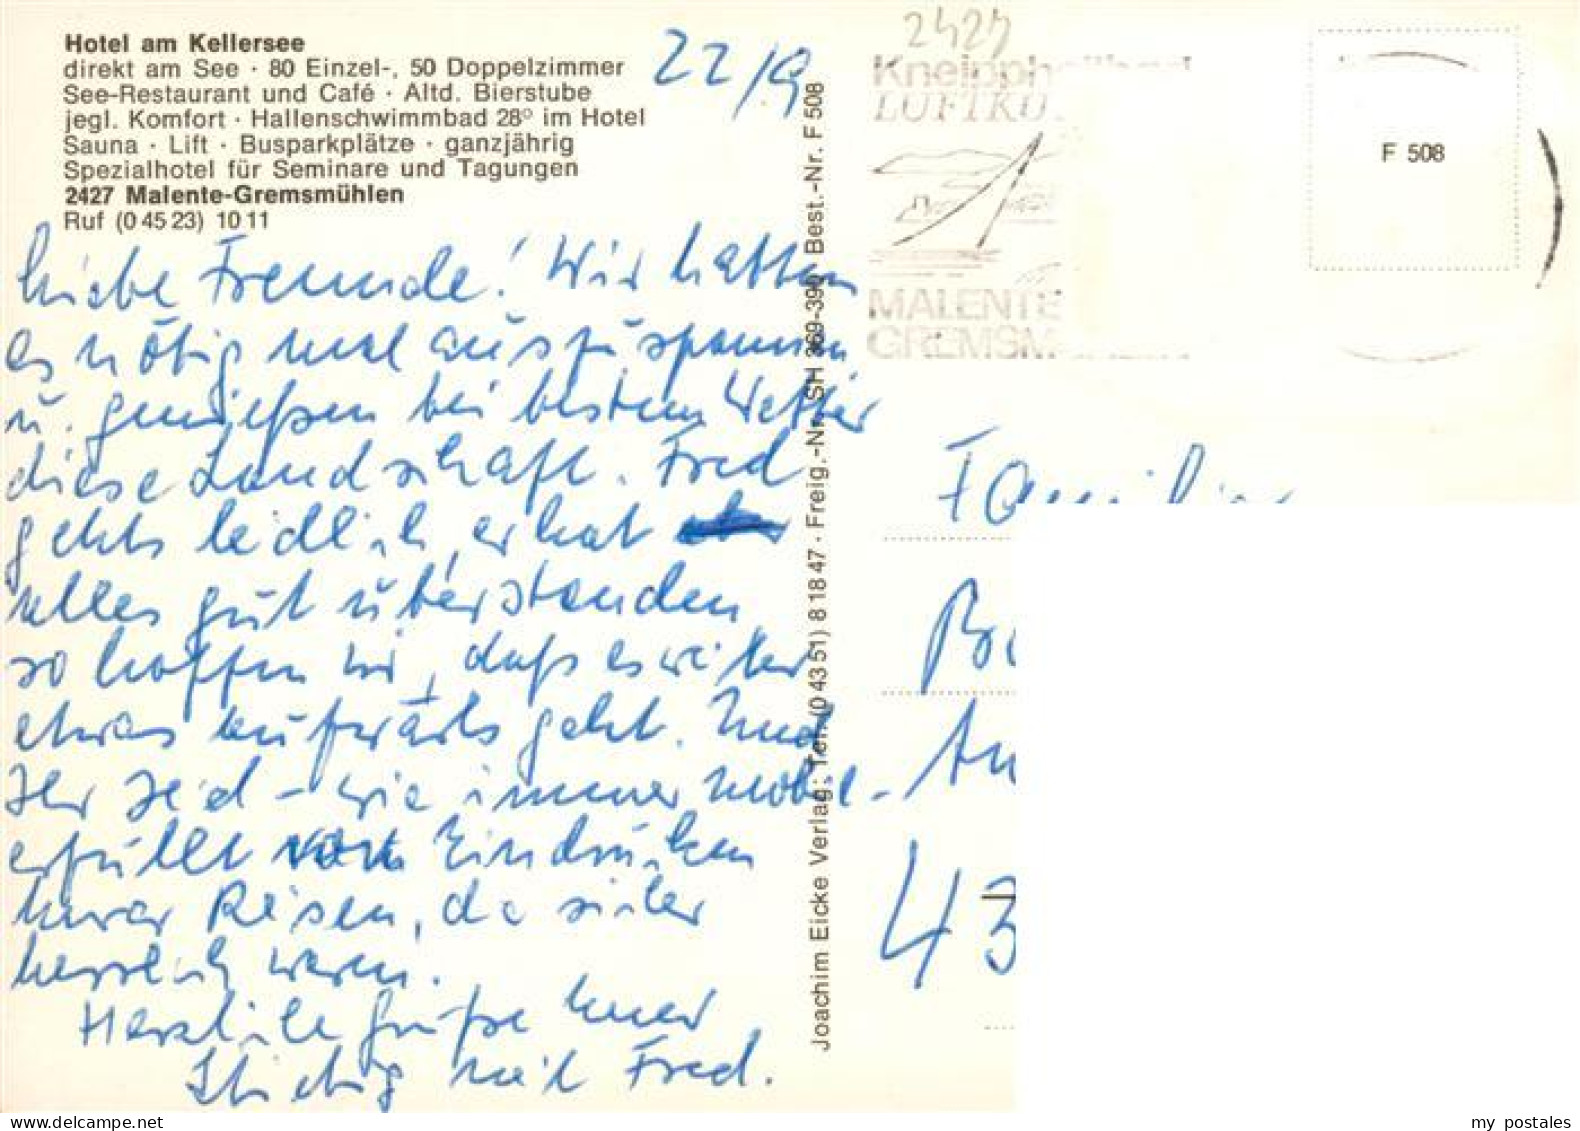 Hotel am Kellersee
direkt am See · 80 Einzel-, 50 Doppelzimmer
See-Restaurant und Café · Altd. Bierstube
jegl. Komfort · Hallenschwimmbad 28° im Hotel
Sauna · Lift · Busparkplätze · ganzjährig
Spezialhotel für Seminare und Tagungen
2427 Malente-Gremsmühlen
Ruf (0 45 23) 10 11
22/9
Liebe Freunde! Wir hatten
es nötig mal auszuspannen
u. genießen bei bestem Wetter
diese Landschaft. Fred
gehts leidlich, er hat
alles gut überstanden
so hoffen wir, daß es weiter
etwas aufwärts geht. Und
Ihr seid - wie immer mobil -
erfüllt von Eindrücken
Eurer Reisen, die sicher
herrlich waren.
Herzliche Grüße Eurer
mit Fred.
Joachim Eicke Verlag; Tel. (0 43 51) 8 18 47 · Freig.-Nr. SH 369-390 Best.-Nr. F 508
2427
Kneippheilbad
LUFTKU
MALENTE
GREMSM
F 508
Familie
43
my postales